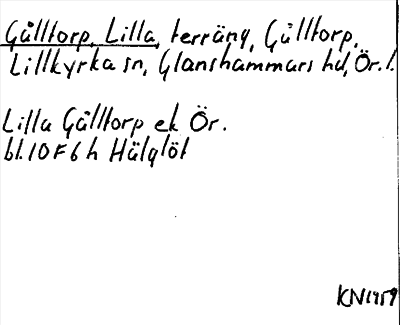 Gålltorp, Lilla, terräng, Gålltorp,
Lillkyrka sn, Glanshammars hd, Ör. l.
Lilla Gålltorp ek Ör.
bl. 10 F 6 h Hälglöt
KN1959